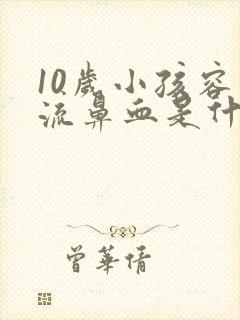 10歲小孩容
流鼻血是什
曾華倩